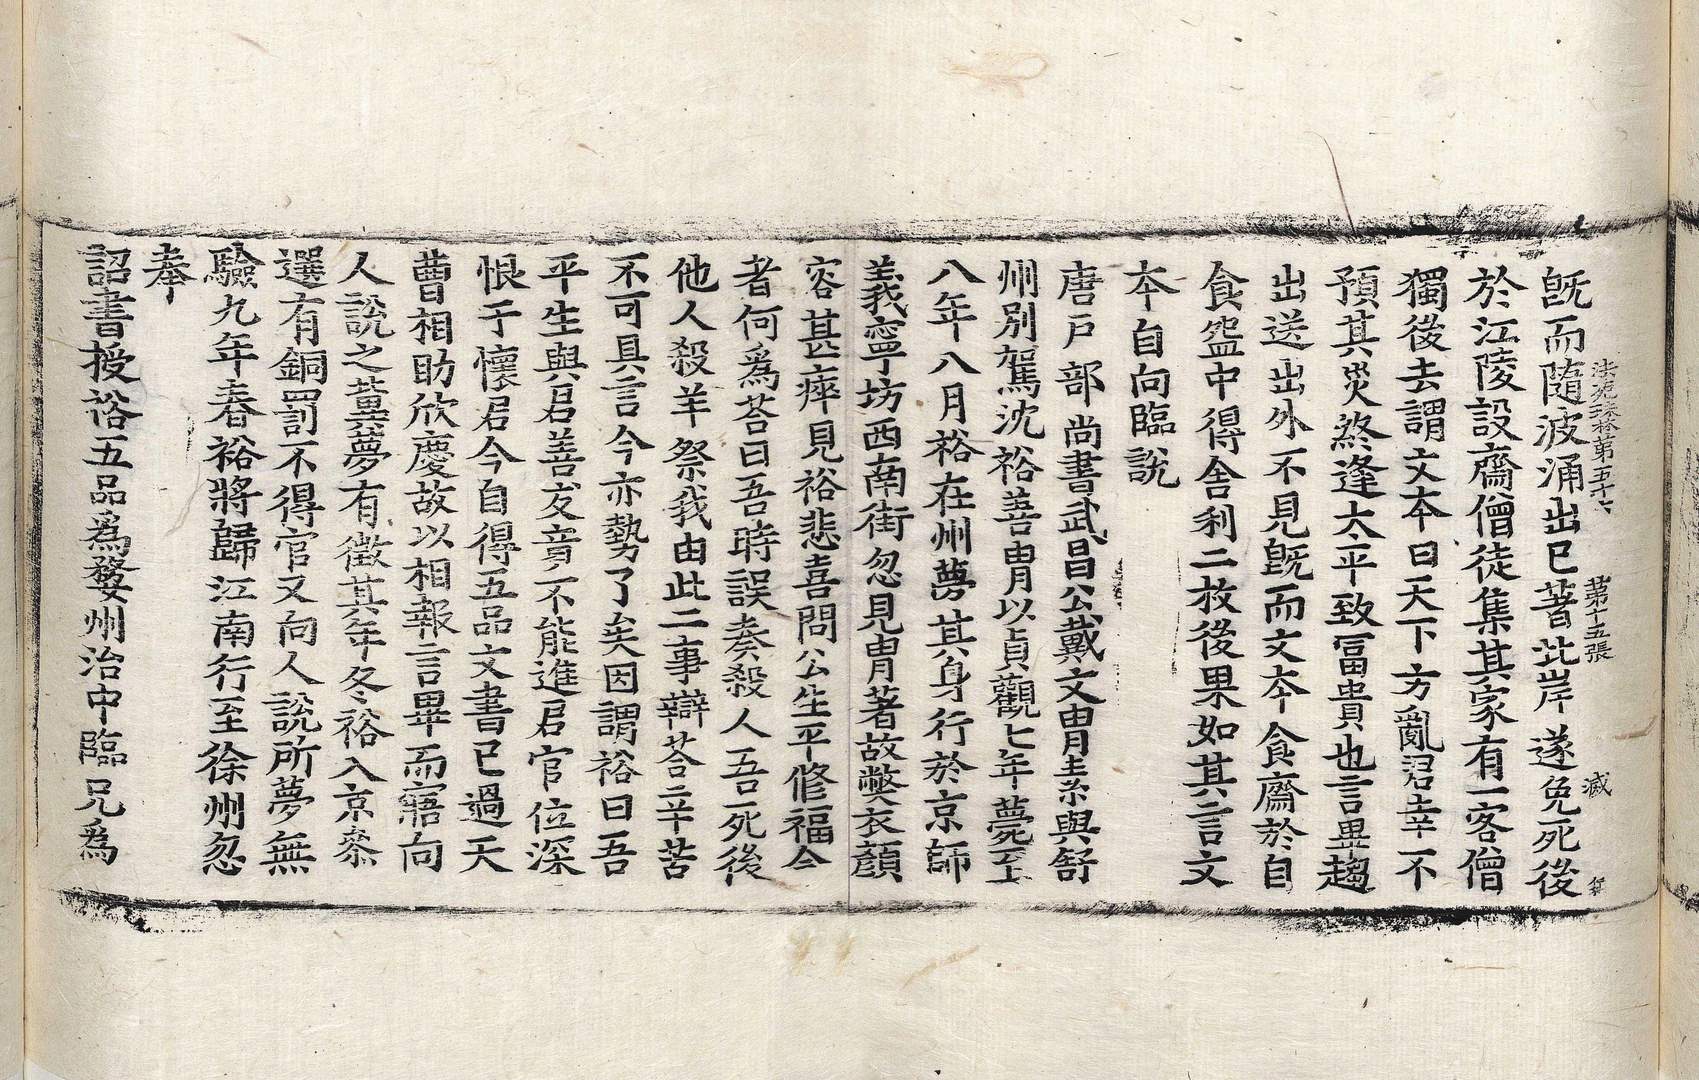 法苑珠林第五十六　第十五張　滅
既而隨波涌出已著此岸遂免死後
於江陵設齋僧徒集其家有一客僧
獨後去謂文本曰天下方亂君幸不
預其災終逢太平致冨貴也言畢趨
出送出外不見既而文本食齋於自
食盌中得舍利二枚後果如其言文
本自向臨說
唐戶部尚書武昌公戴文胄素與舒
州別駕沈裕善胄以貞觀七年薨至
八年八月裕在州夢其身行於京師
義寧坊西南街忽見胄著故弊衣顔
容甚瘁見裕悲喜問公生平修福今
者何爲荅曰吾時誤奏殺人吾死後
他人殺羊祭我由此二事辯荅辛苦
不可具言今亦勢了矣因謂裕曰吾
平生與君善友竟不能進君官位深
恨于懷君今自得五品文書已過天
曹相助欣慶故以相報言畢而寤向
人說之冀夢有徵其年冬裕入京叅
選有銅罰不得官又向人說所夢無
驗九年春裕將歸江南行至徐州忽
奉
詔書授裕五品爲婺州治中臨兄爲